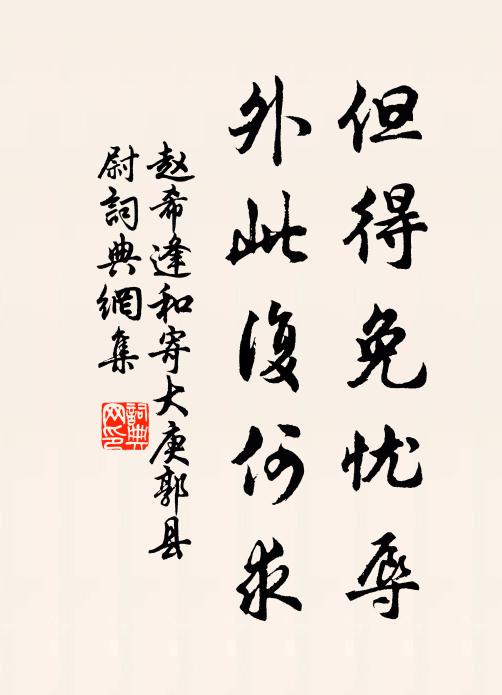 但得免忧辱
外此復何求
赵希逢和寄大庚郭县
尉詞典網集
詞典
网印